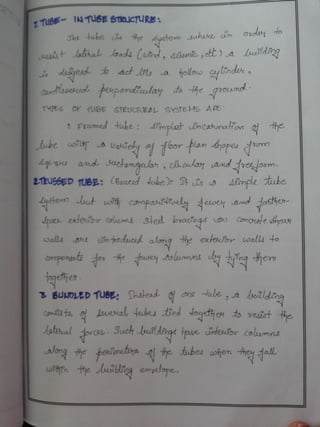 I TUBE - IN TUBE STRUCTURE:
The tube is the system where in order to
resist lateral loads (wind, seismic, etc) a building
is designed to act like a hollow cylinder,
cantilevered perpendicular to the ground.
TYPES OF TUBE STRUCTURAL SYSTEMS ARE:
1 Framed tube: simplest incarnation of the
tube with a variety of floor plan shapes from
square and rectangular, circular and freeform.
2.TRUSSED TUBE: (Braced tube): It is a simple tube
system but with comparitively fewer and farther-
space exterior colums. Steel bracings or concrete shear
walls are introduced along the exterior walls to
compensate for the fewer columns by tying them
together.
3. BUNDLED TUBE: Instead of one tube, a building
consists of several tubes tied together to resist the
lateral forces. Such buildings have interior columns
along the perimeters of the tubes when they fall
within the building envelope.